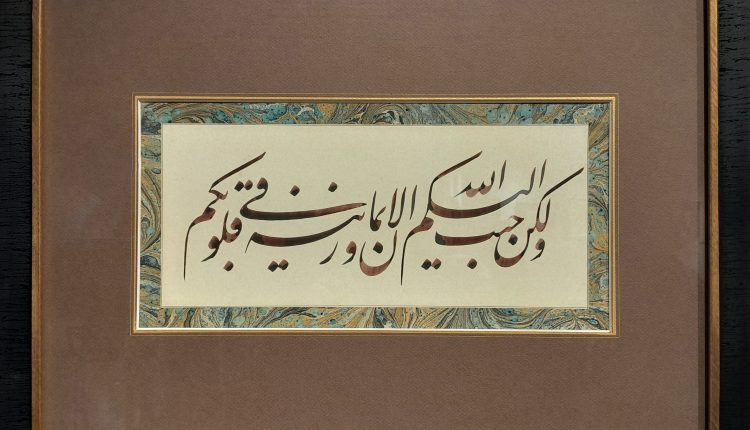 ولكن الله حبب اليكم الايمان وزينه في قلوبكم